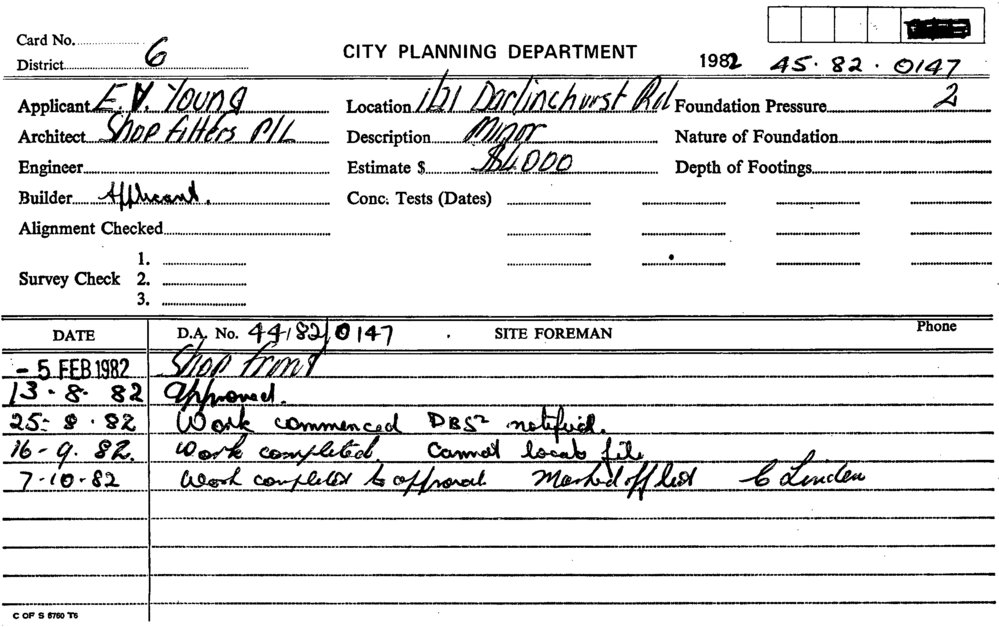 Card No.
District 6
CITY PLANNING DEPARTMENT
1982 45·82·0147
Applicant E.V. Young Location 1/21 Darlinghurst Rd Foundation Pressure 2
Architect Shop fitters P/L Description Minor Nature of Foundation
Engineer Estimate $ $4000 Depth of Footings
Builder Applicant. Conc. Tests (Dates)
Alignment Checked
1.
Survey Check 2.
3.
DATE D.A. No. 44/82/0147 SITE FOREMAN Phone
- 5 FEB 1982 Shop front
13-8-82 Approved.
25-8-82 Work commenced DBS notified.
16-9-82. Work completed. Cannot locate file
7-10-82 Work completed to approval Marked off list C Linden
C OF S 5760 T6